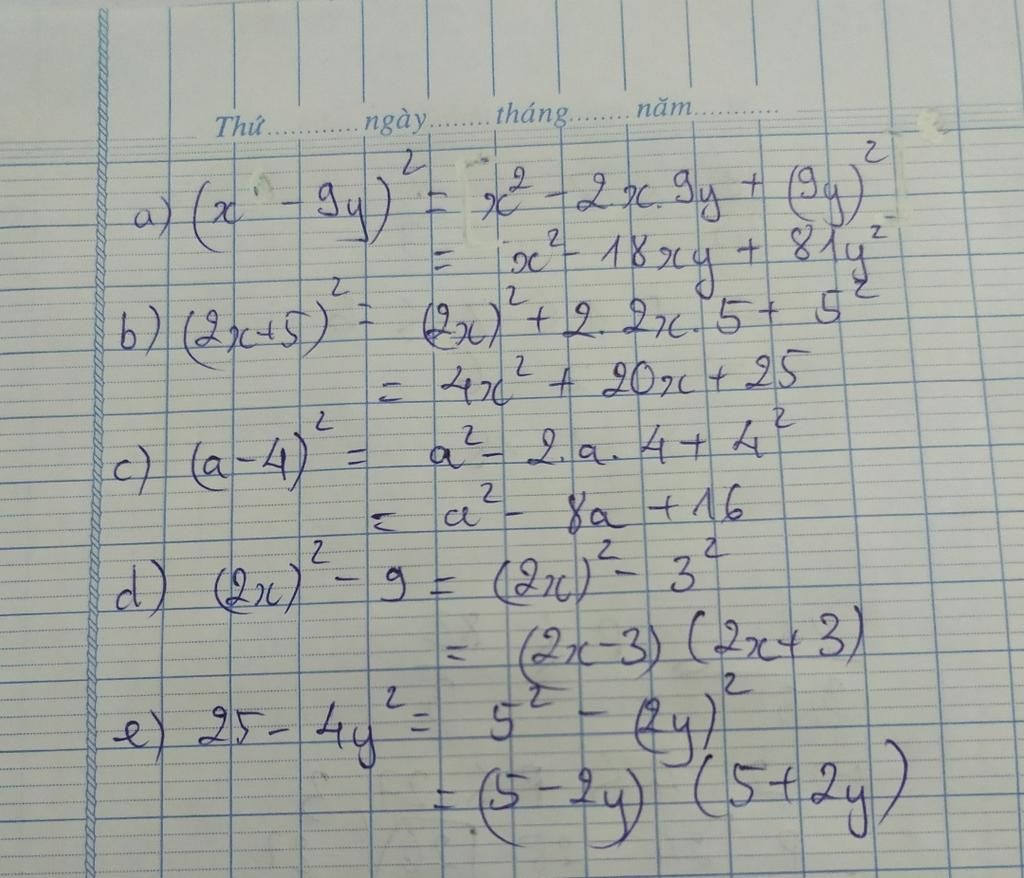 Thứ............ngày........tháng........năm...........
a) (x - 9y)² = x² - 2x.9y + (9y)²
= x² - 18xy + 81y²
b) (2x+5)² = (2x)² + 2.2x.5 + 5²
= 4x² + 20x + 25
c) (a-4)² = a² - 2.a.4 + 4²
= a² - 8a + 16
d) (2x)² - 9 = (2x)² - 3²
= (2x-3) (2x+3)
e) 25 - 4y² = 5² - (2y)²
= (5-2y) (5+2y)